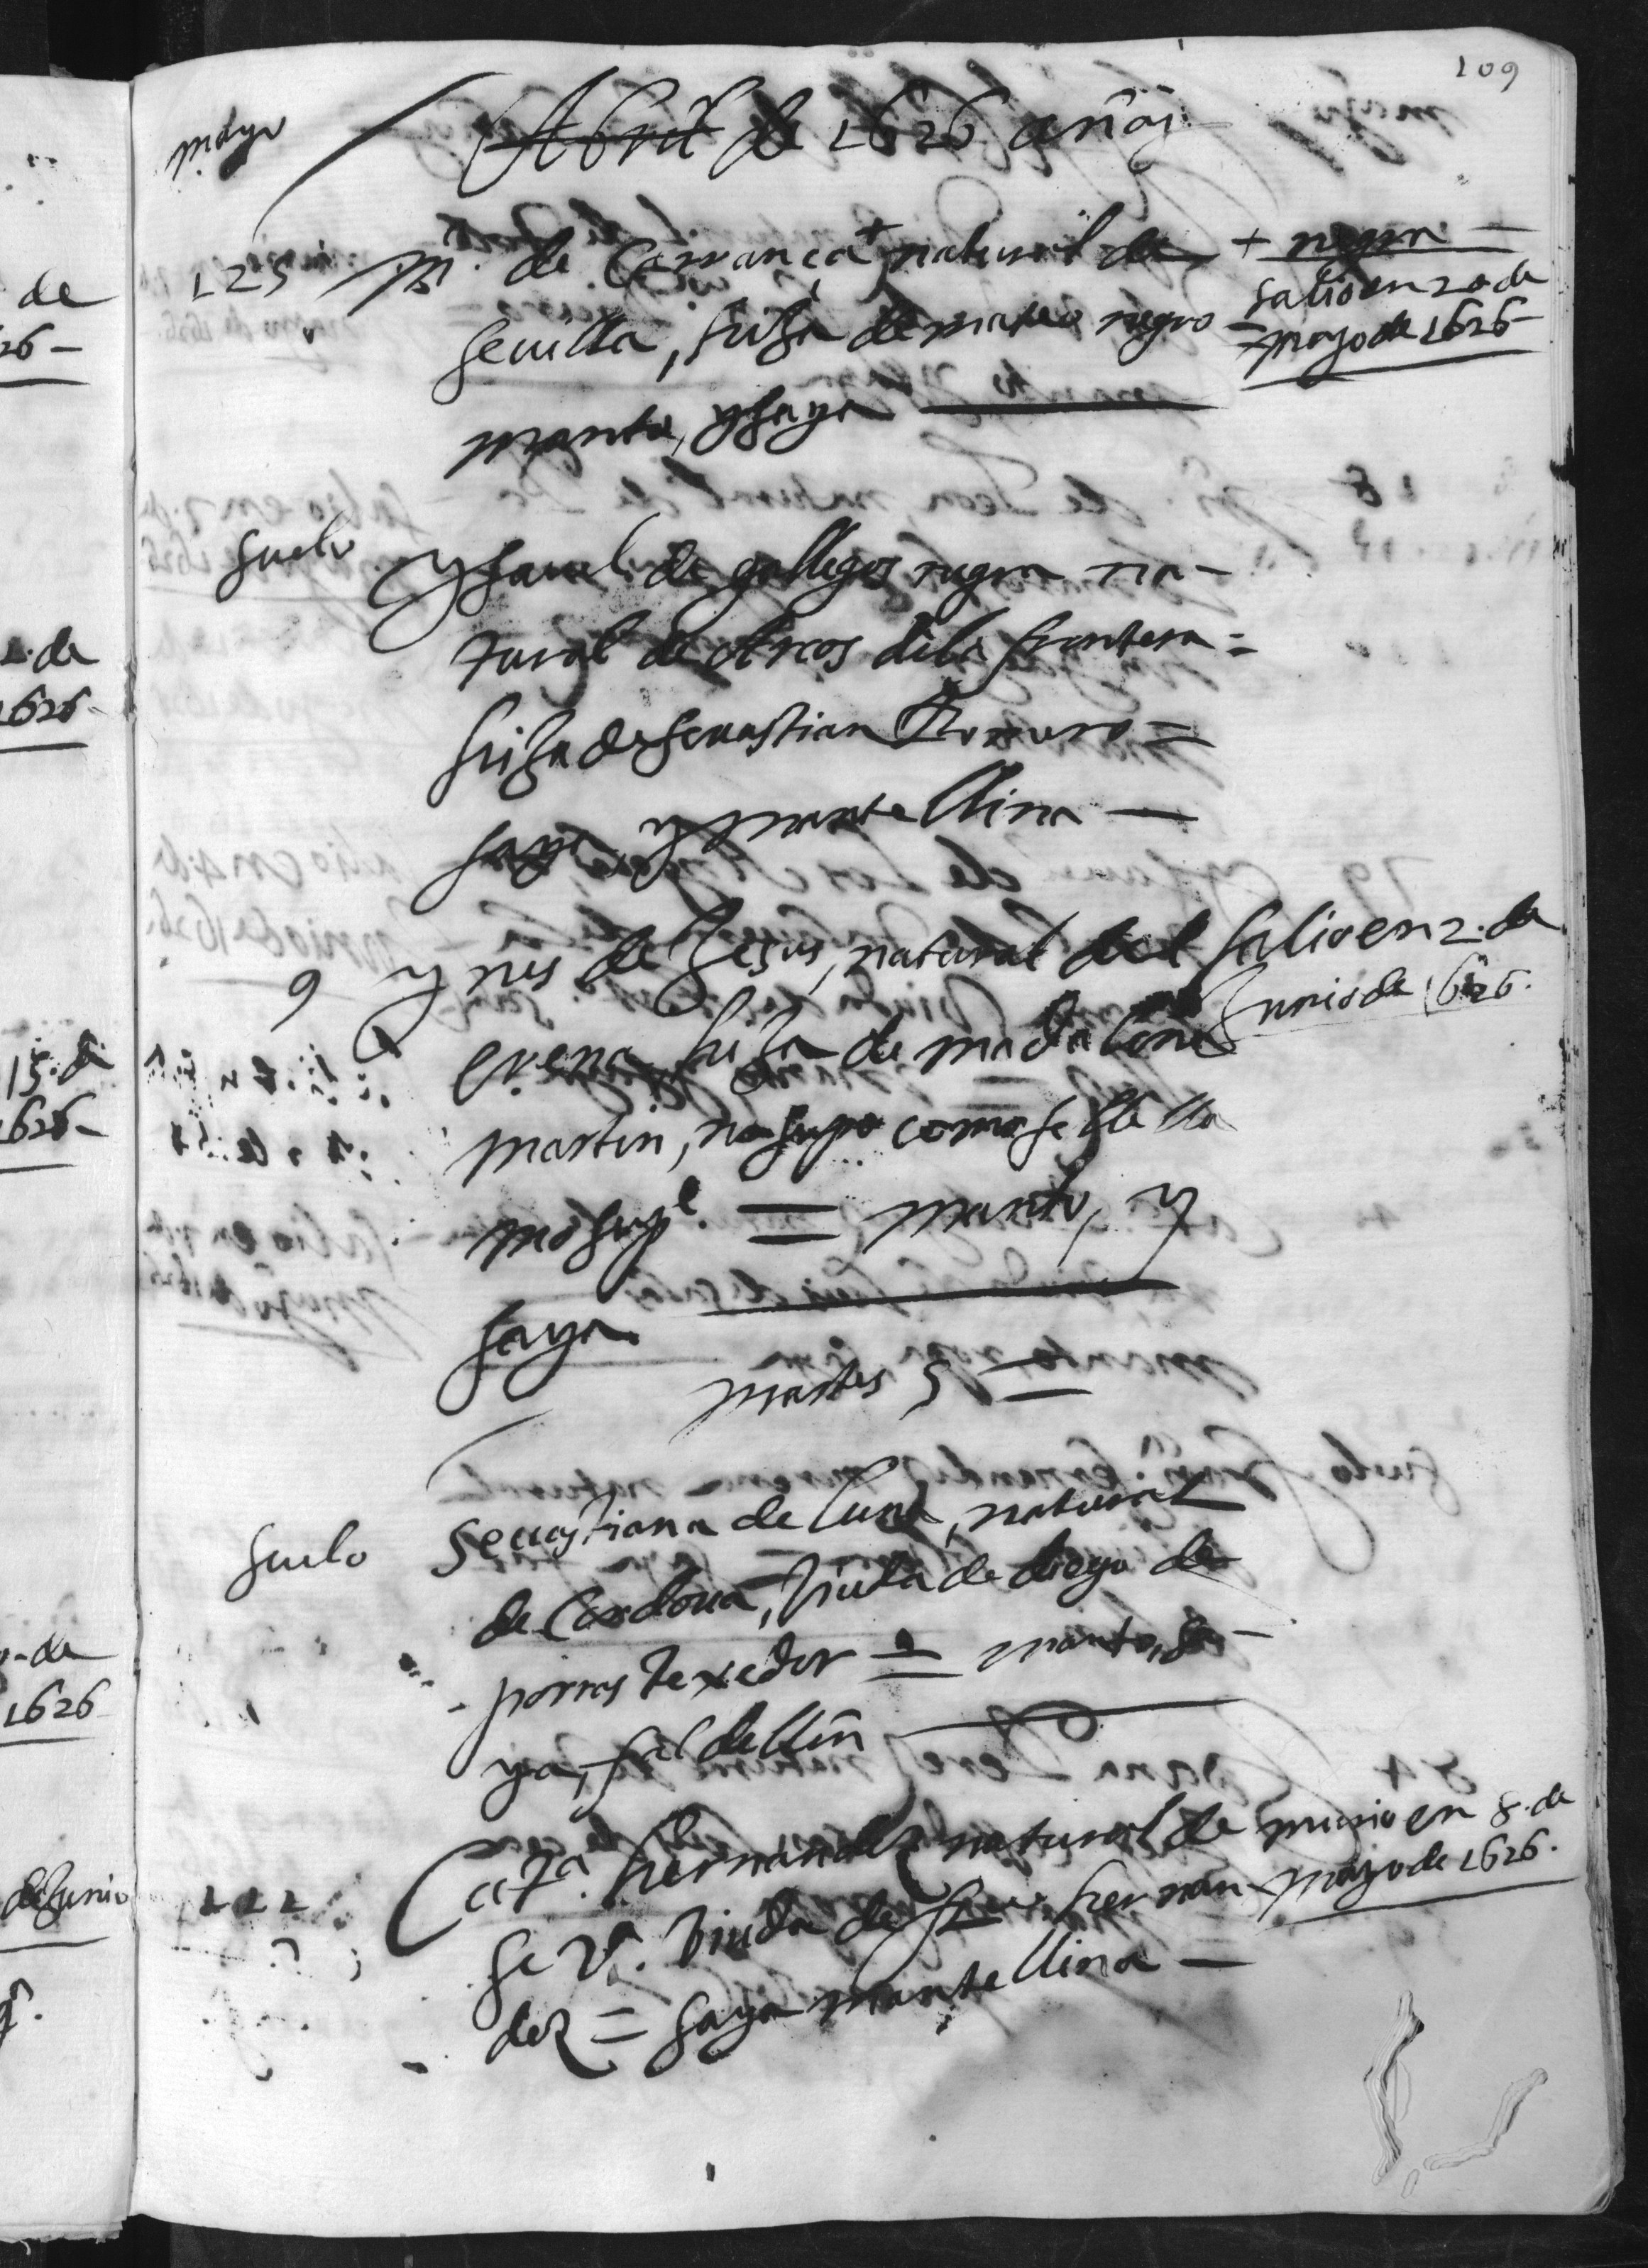 109
mayo
Abril de 1626 años
125 Mª. de Carrança + natural de + negra =
seuilla, hija de mateo negro = salio en 20 de
mayo de 1626
manto, y saya
suelo Ysauel de gallegos negra na-
tural de Arcos dela frontera =
hija de seuastian Romero =
saya, y mantellina —
9 ynes de Jesus, natural del salio en 2. de
Junio de 1626.
hija de madalena
martin, no supo como se lla
mo su pe. = manto, y
saya
martes 5 =
suelo Seuastiana de luna, natural
de Cordoua, Viuda de diego de
porras texedor = manto, sa-
ya, faldellin
112 Cata. hernandez natural de murio en 8. de
mayo de 1626.
seva. Viuda de hernan-
dez = saya mantellina —
de
26 —
2. de
1626 —
15. de
1626 —
de
1626
de Junio